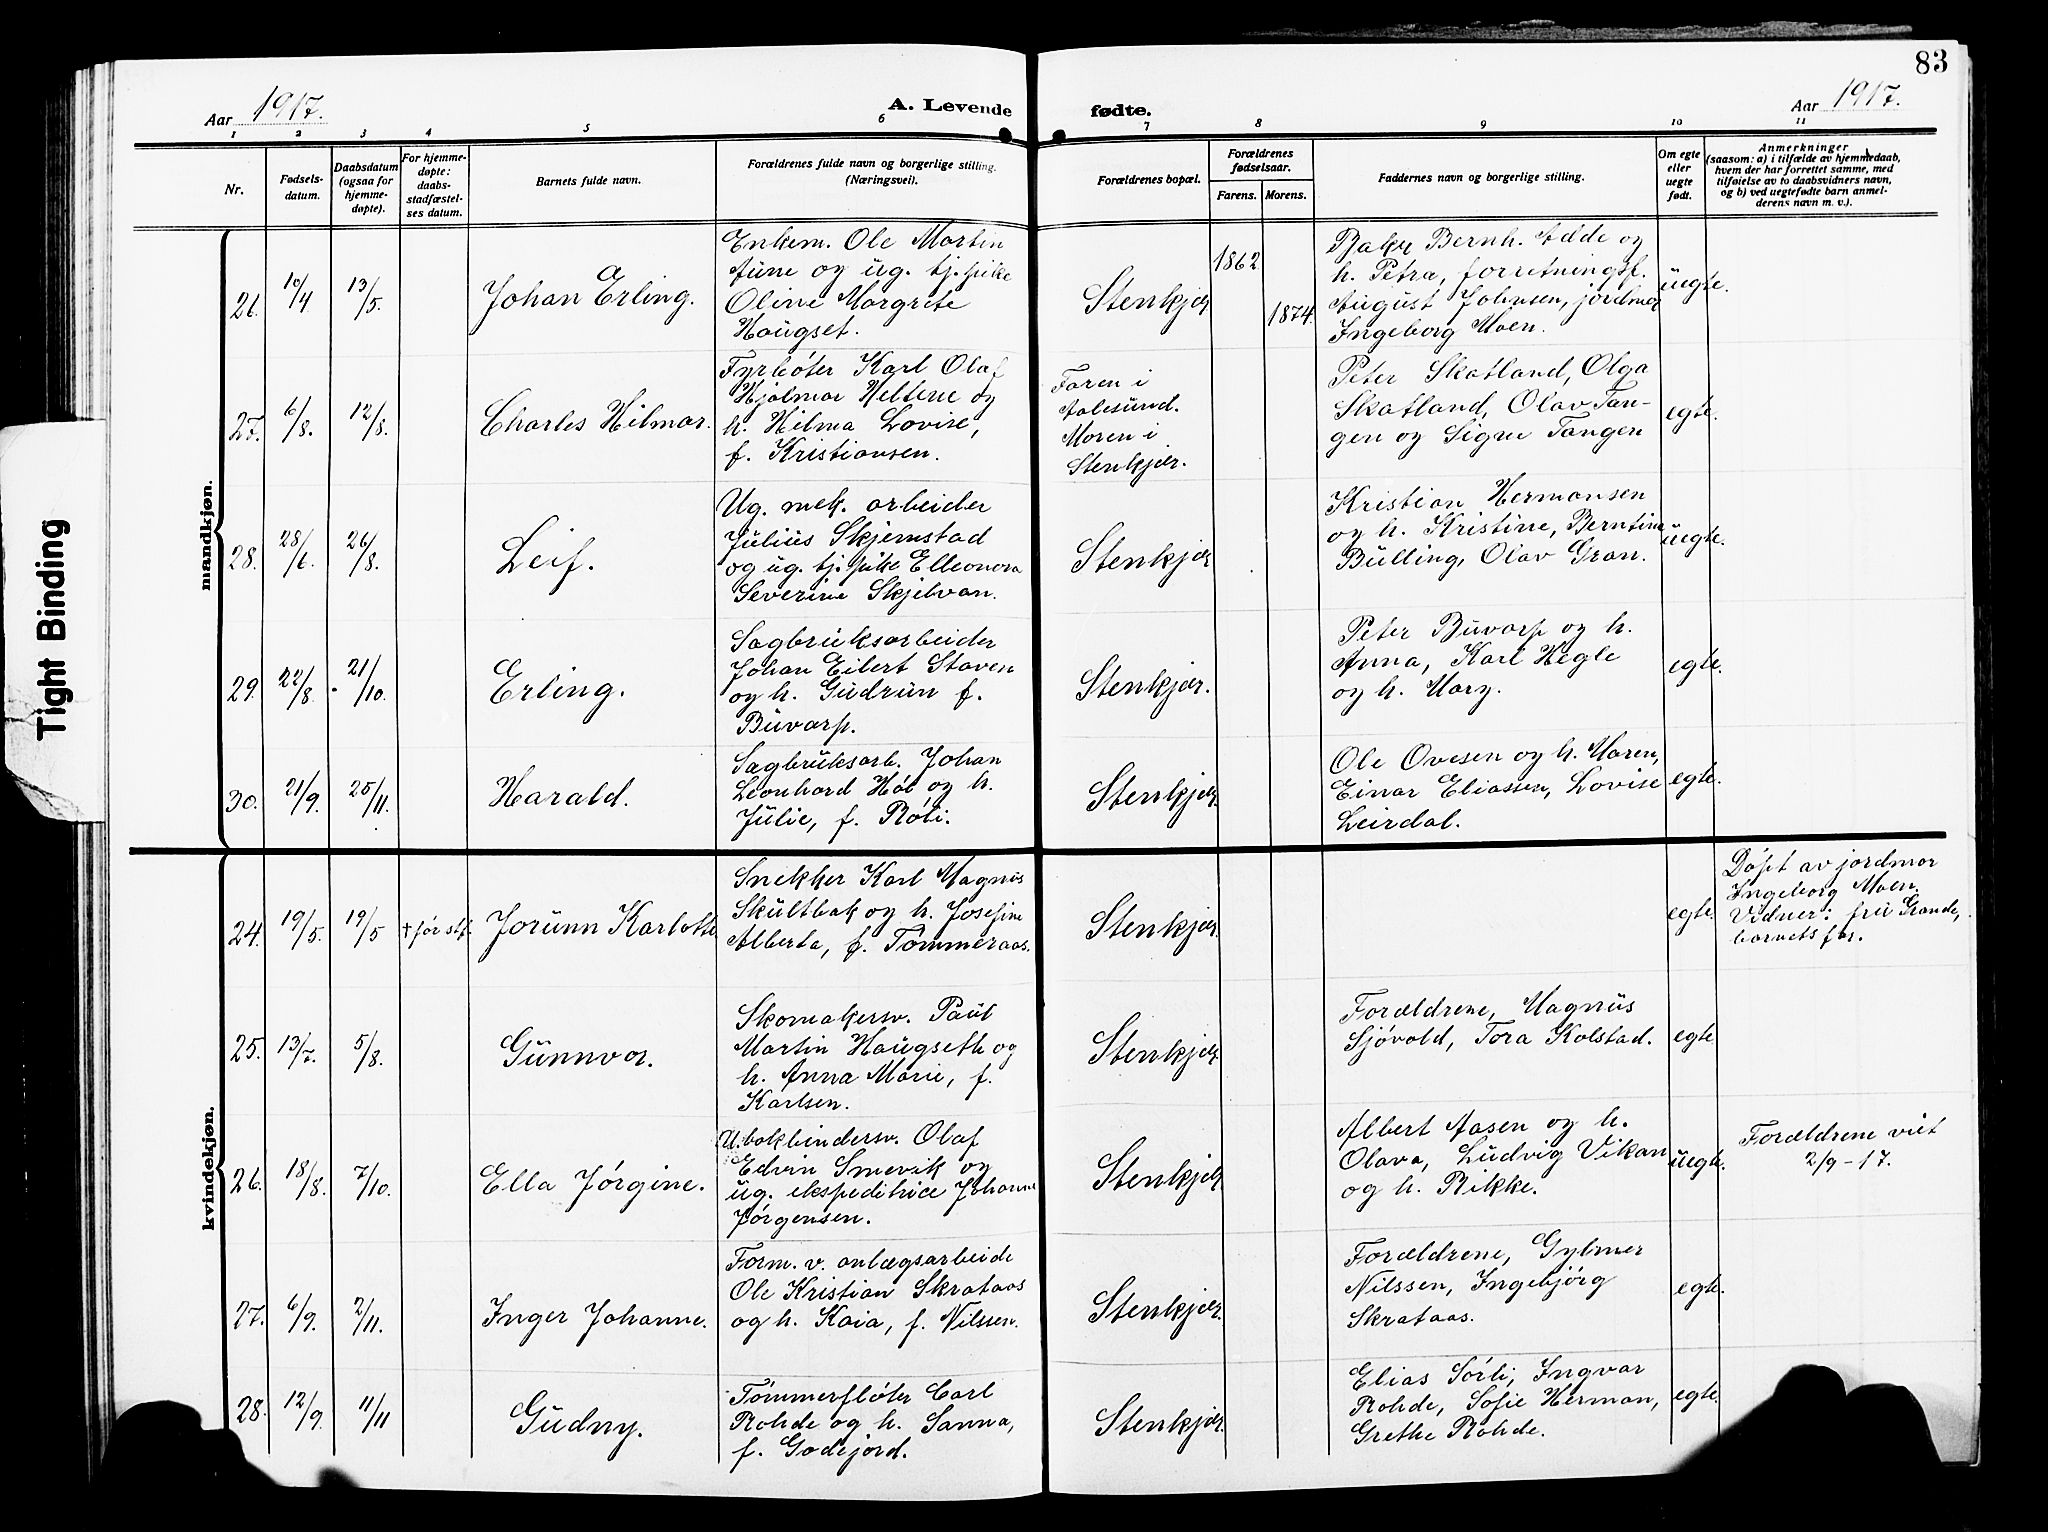 83
Aar 1917.
A. Levende
fødte.
Aar 1917.
1 2 3 4 5 6 7 8 9 10 11
Nr.
Fødsels-
datum.
Daabsdatum
(ogsaa for
hjemme-
døpte).
For hjemme-
døpte:
daabs-
stadfæstel-
ses datum.
Barnets fulde navn.
Forældrenes fulde navn og borgerlige stilling.
(Næringsvei).
Forældrenes bopæl.
Forældrenes
fødselsaar.
Farens. Morens.
Faddernes navn og borgerlige stilling.
Om egte
eller
uegte
født.
Anmerkninger
(saasom: a) i tilfælde av hjemmedaab,
hvem der har forrettet samme, med
tilføielse av to daabsvidners navn,
og b) ved uegtefødte barn anmel-
derens navn m. v.).
Tight Binding
mandkjøn.
26. 10/4 13/5. Johan Erling.
Enkem. Ole Martin
Aune og ug. tj.pike
Oline Margrete
Haugset.
Stenkjær
1862.
1874.
Baker Bernh. Adde og
h. Petra, forretningsf.
August Johnsen, jordmor
Ingeborg Moen.
uegte.
27. 6/8. 12/8. Charles Hilmar.
Fyrbøter Karl Olaf
Hjalmar Heltene og
h. Hilma Lovise,
f. Kristiansen.
Faren i
Aalesund.
Moren i
Stenkjær.
Peter Skatland, Olga
Skatland, Olav Tan-
gen og Signe Tangen
egte.
28. 28/6. 26/8. Leif.
Ug. mek. arbeider
Julius Skjemstad
og ug. tj. pike Elleonora
Severine Skjelvan.
Stenkjær
Kristian Hermansen
og h. Kristine, Berntine
Bulling, Olav Gran.
uegte.
29. 22/8. 21/10. Erling.
Sagbruksarbeider
Johan Eilert Staven
og h. Gudrun f.
Buvarp.
Stenkjær.
Peter Buvarp og h.
Anna, Karl Hegle
og h. Mary.
egte.
30. 21/9. 25/11. Harald.
Sagbruksarb. Johan
Leonhard Høl og h.
Julie, f. Røli.
Stenkjær
Ole Ovesen og h. Maren,
Einar Eliassen, Lovise
Leirdal.
egte.
kvindekjøn.
24. 19/5. 19/5 † før stf. Jorunn Karlotte
Snekker Karl Magnus
Skultbak og h. Josefine
Alberta, f. Tømmeraas.
Stenkjær.
egte.
Døpt av jordmor
Ingeborg Moen.
Vidner: fru Grande,
barnets far.
25. 13/7. 5/8. Gunnvor.
Skomakersv. Paul
Martin Haugseth og
h. Anna Marie, f.
Karlsen.
Stenkjær
Forældrene, Magnus
Sjøvold, Tora Kolstad.
egte
26. 18/8. 7/10. Ella Jørgine.
U. bokbindersv. Olaf
Edvin Smevik og
ug. ekspeditrice Johanne
Jørgensen.
Stenkjær
Albert Aasen og h.
Olava, Ludvig Vikan
og h. Rikke.
uegte.
Forældrene viet
2/9-17.
27. 6/9. 2/11. Inger Johanne.
Form. v. anlægsarbeide
Ole Kristian Skrataas
og h. Kaia, f. Nilssen.
Stenkjær.
Forældrene, Gylmer
Nilssen, Ingebjørg
Skrataas.
egte.
28. 12/9. 11/11 Gudny.
Tømmerfløter Carl
Rohde og h. Sanna,
f. Godejord.
Stenkjær.
Elias Sørli, Ingvar
Rohde, Sofie Herman,
Grethe Rohde.
egte.